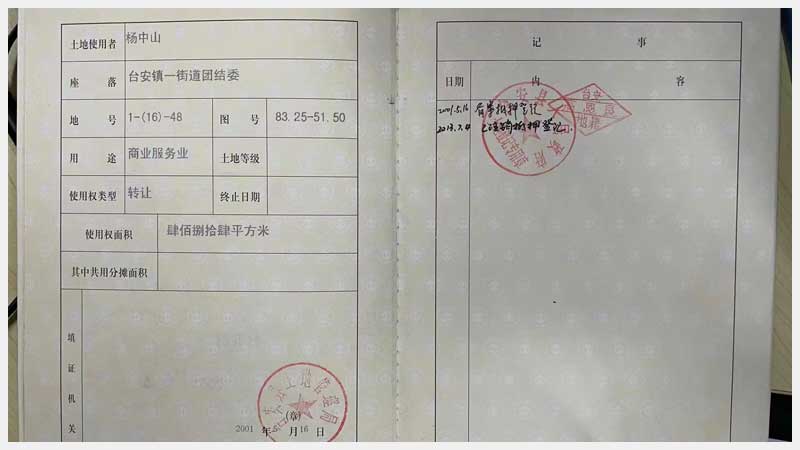 土地使用者 杨中山
座 落 台安镇一街道团结委
地 号 1-(16)-48 图 号 83.25-51.50
用 途 商业服务业 土地等级
使用权类型 转让 终止日期
使用权面积 肆佰捌拾肆平方米
其中共用分摊面积
填证机关
土地管理局
(章)
2001 年 5 月 16 日
记 事
日期 内 容
2001.5.16 抵押登记
已注销抵押登记
台安
地籍